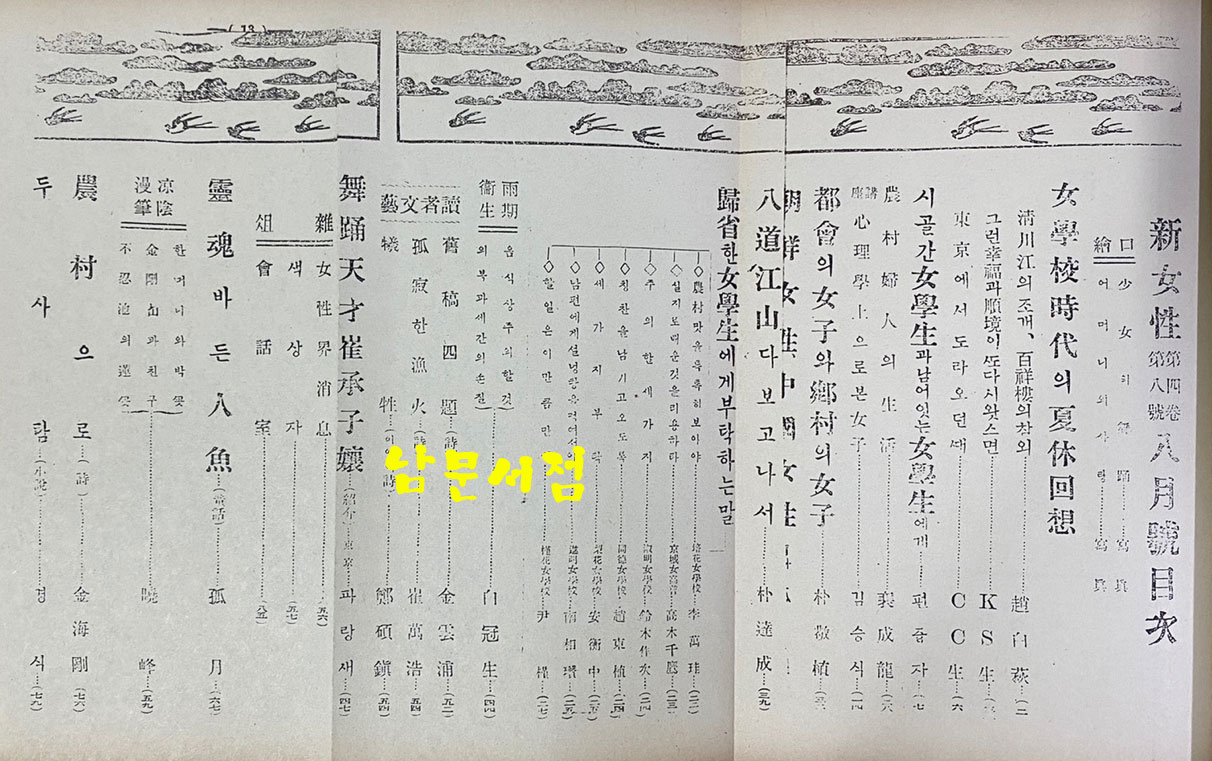 (13)
新女性 第四卷 第八號 八月號目次
口繪
少女의舞踊……寫眞
어머니의사랑……寫眞
女學校時代의夏休回想
淸川江의조개、百祥樓의참외……趙白萩
그런幸福과順境이또다시왓스면……KS生
東京에서도라오던때……CC生……(六
시골간女學生과남어잇는女學生에게……편즙자……(七
農村婦人의生活……裵成龍
講座 心理學上으로본女子……김승식……(一四
都會의女子와鄕村의女子……朴敬植
朝鮮女性中國女性
八道江山다보고나서……朴達成……(三九)
歸省한女學生에게부탁하는말
◇農村맛을쪽쪽히보아야……培花女學校……李萬珪……(二二)
◇실지로배운것을리용하라……京城女高普……高木千鷹……(二三)
◇주의할세가지……淑明女學校……鈴木作次……(二四)
◇칭찬을남기고오도록……同德女學校……趙東植……(二四)
◇세가지부탁……梨花女學校……安衡中……(二五)
◇남편에게설넝탕을먹여서야……進明女學校……南相瓚……(二五)
◇할일은이만큼만……槿花女學校……尹槿……(二七)
雨期衞生
음식상주의할것
의복과세간의손질
……白冠生……(四四)
讀者文藝
舊稿四題(詩)……金雲浦……(五二)
孤寂한漁火(詩)……崔萬浩……(五四)
犧牲……鄭碩鎭……(五四)
舞踊天才崔承子孃……(紹介)……東京 파랑새……(四七)
雜俎
女性界消息……(五六)
색상자……(五七)
會話室……(八五)
靈魂바든八魚……(童話)……孤月……(六七)
凉陰漫筆
한머니와박꼿
金剛山과친구
不忍池의蓮꼿
……曉峰……(五九)
農村으로……(詩)……金海剛……(七六)
두사람……(小說)……경식……(七九)
남문서점